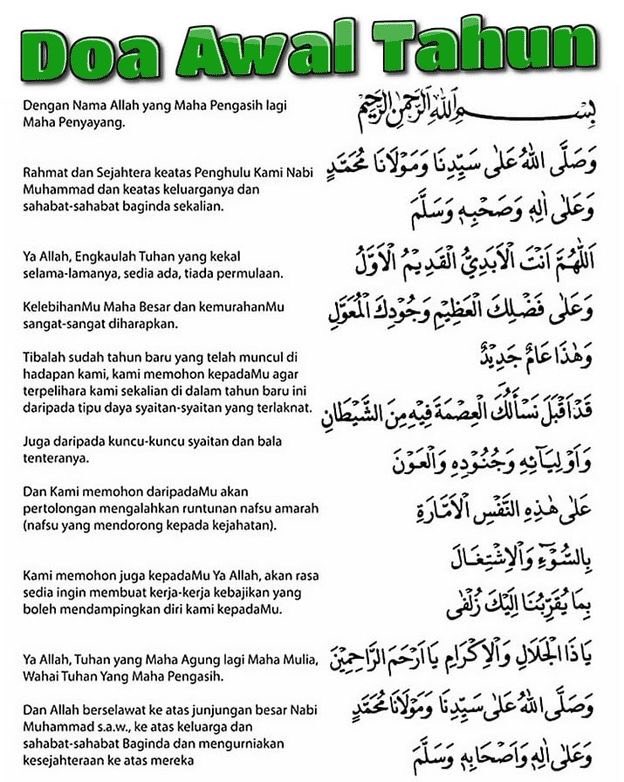 Doa Awal Tahun
Dengan Nama Allah yang Maha Pengasih lagi
Maha Penyayang.
بِسْمِ اللهِ الرَّحْمٰنِ الرَّحِيْمِ
Rahmat dan Sejahtera keatas Penghulu Kami Nabi
Muhammad dan keatas keluarganya dan
sahabat-sahabat baginda sekalian.
وَصَلَّى اللهُ عَلٰى سَيِّدِنَا وَمَوْلَانَا مُحَمَّدٍ
وَعَلٰى اٰلِهٖ وَصَحْبِهٖ وَسَلَّمَ
Ya Allah, Engkaulah Tuhan yang kekal
selama-lamanya, sedia ada, tiada permulaan.
اَللّٰهُمَّ اَنْتَ الْاَبَدِيُّ الْقَدِيْمُ الْاَوَّلُ
KelebihanMu Maha Besar dan kemurahanMu
sangat-sangat diharapkan.
وَعَلٰى فَضْلِكَ الْعَظِيْمِ وَجُوْدِكَ الْمُعَوَّلِ
Tibalah sudah tahun baru yang telah muncul di
hadapan kami, kami memohon kepadaMu agar
terpelihara kami sekalian di dalam tahun baru ini
daripada tipu daya syaitan-syaitan yang terlaknat.
وَهٰذَا عَامٌ جَدِيْدٌ
قَدْ اَقْبَلَ نَسْأَلُكَ الْعِصْمَةَ فِيْهِ مِنَ الشَّيْطَانِ
Juga daripada kuncu-kuncu syaitan dan bala
tenteranya.
وَاَوْلِيَآئِهٖ وَجُنُوْدِهٖ وَالْعَوْنَ
Dan Kami memohon daripadaMu akan
pertolongan mengalahkan runtunan nafsu amarah
(nafsu yang mendorong kepada kejahatan).
عَلٰى هٰذِهِ النَّفْسِ الْاَمَّارَةِ
بِالسُّوْٓءِ وَالْاِشْتِغَالَ
Kami memohon juga kepadaMu Ya Allah, akan rasa
sedia ingin membuat kerja-kerja kebajikan yang
boleh mendampingkan diri kami kepadaMu.
بِمَا يُقَرِّبُنَا اِلَيْكَ زُلْفٰى
Ya Allah, Tuhan yang Maha Agung lagi Maha Mulia,
Wahai Tuhan Yang Maha Pengasih.
يَاذَا الْجَلَالِ وَالْاِكْرَامِ يَا اَرْحَمَ الرَّاحِمِيْنَ
Dan Allah berselawat ke atas junjungan besar Nabi
Muhammad s.a.w., ke atas keluarga dan
sahabat-sahabat Baginda dan mengurniakan
kesejahteraan ke atas mereka
وَصَلَّى اللهُ عَلٰى سَيِّدِنَا وَمَوْلَانَا مُحَمَّدٍ
وَعَلٰى اٰلِهٖ وَاَصْحَابِهٖ وَسَلَّمَ